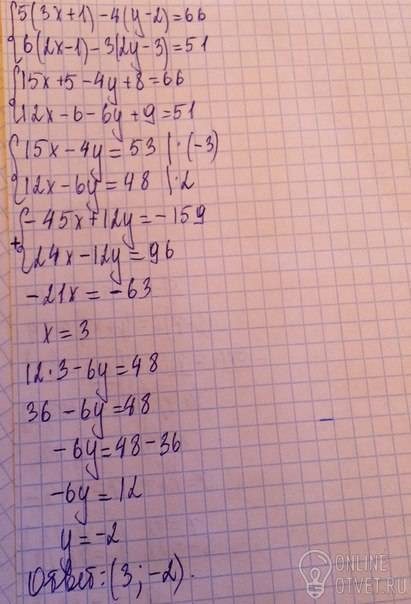 {5(3x+1)-4(y-2)=66
{6(2x-1)-3(2y-3)=51
{15x+5-4y+8=66
{12x-6-6y+9=51
{15x-4y=53 |·(-3)
{12x-6y=48 |·2
+{-45x+12y=-159
{24x-12y=96
-21x=-63
x=3
12·3-6y=48
36-6y=48
-6y=48-36
-6y=12
y=-2
Ответ:(3;-2).
ONLINE
OTVET.RU